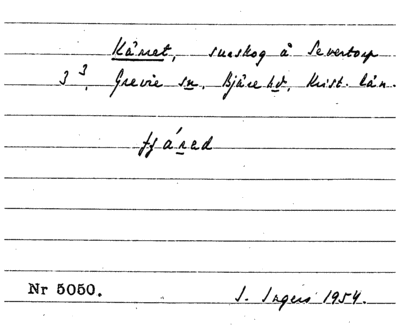 Kärret, småskog å Severtorp
3³. Grevie sn, Bjäre hd, Krist. län.
Nr 5050. I. Ingers 1954.